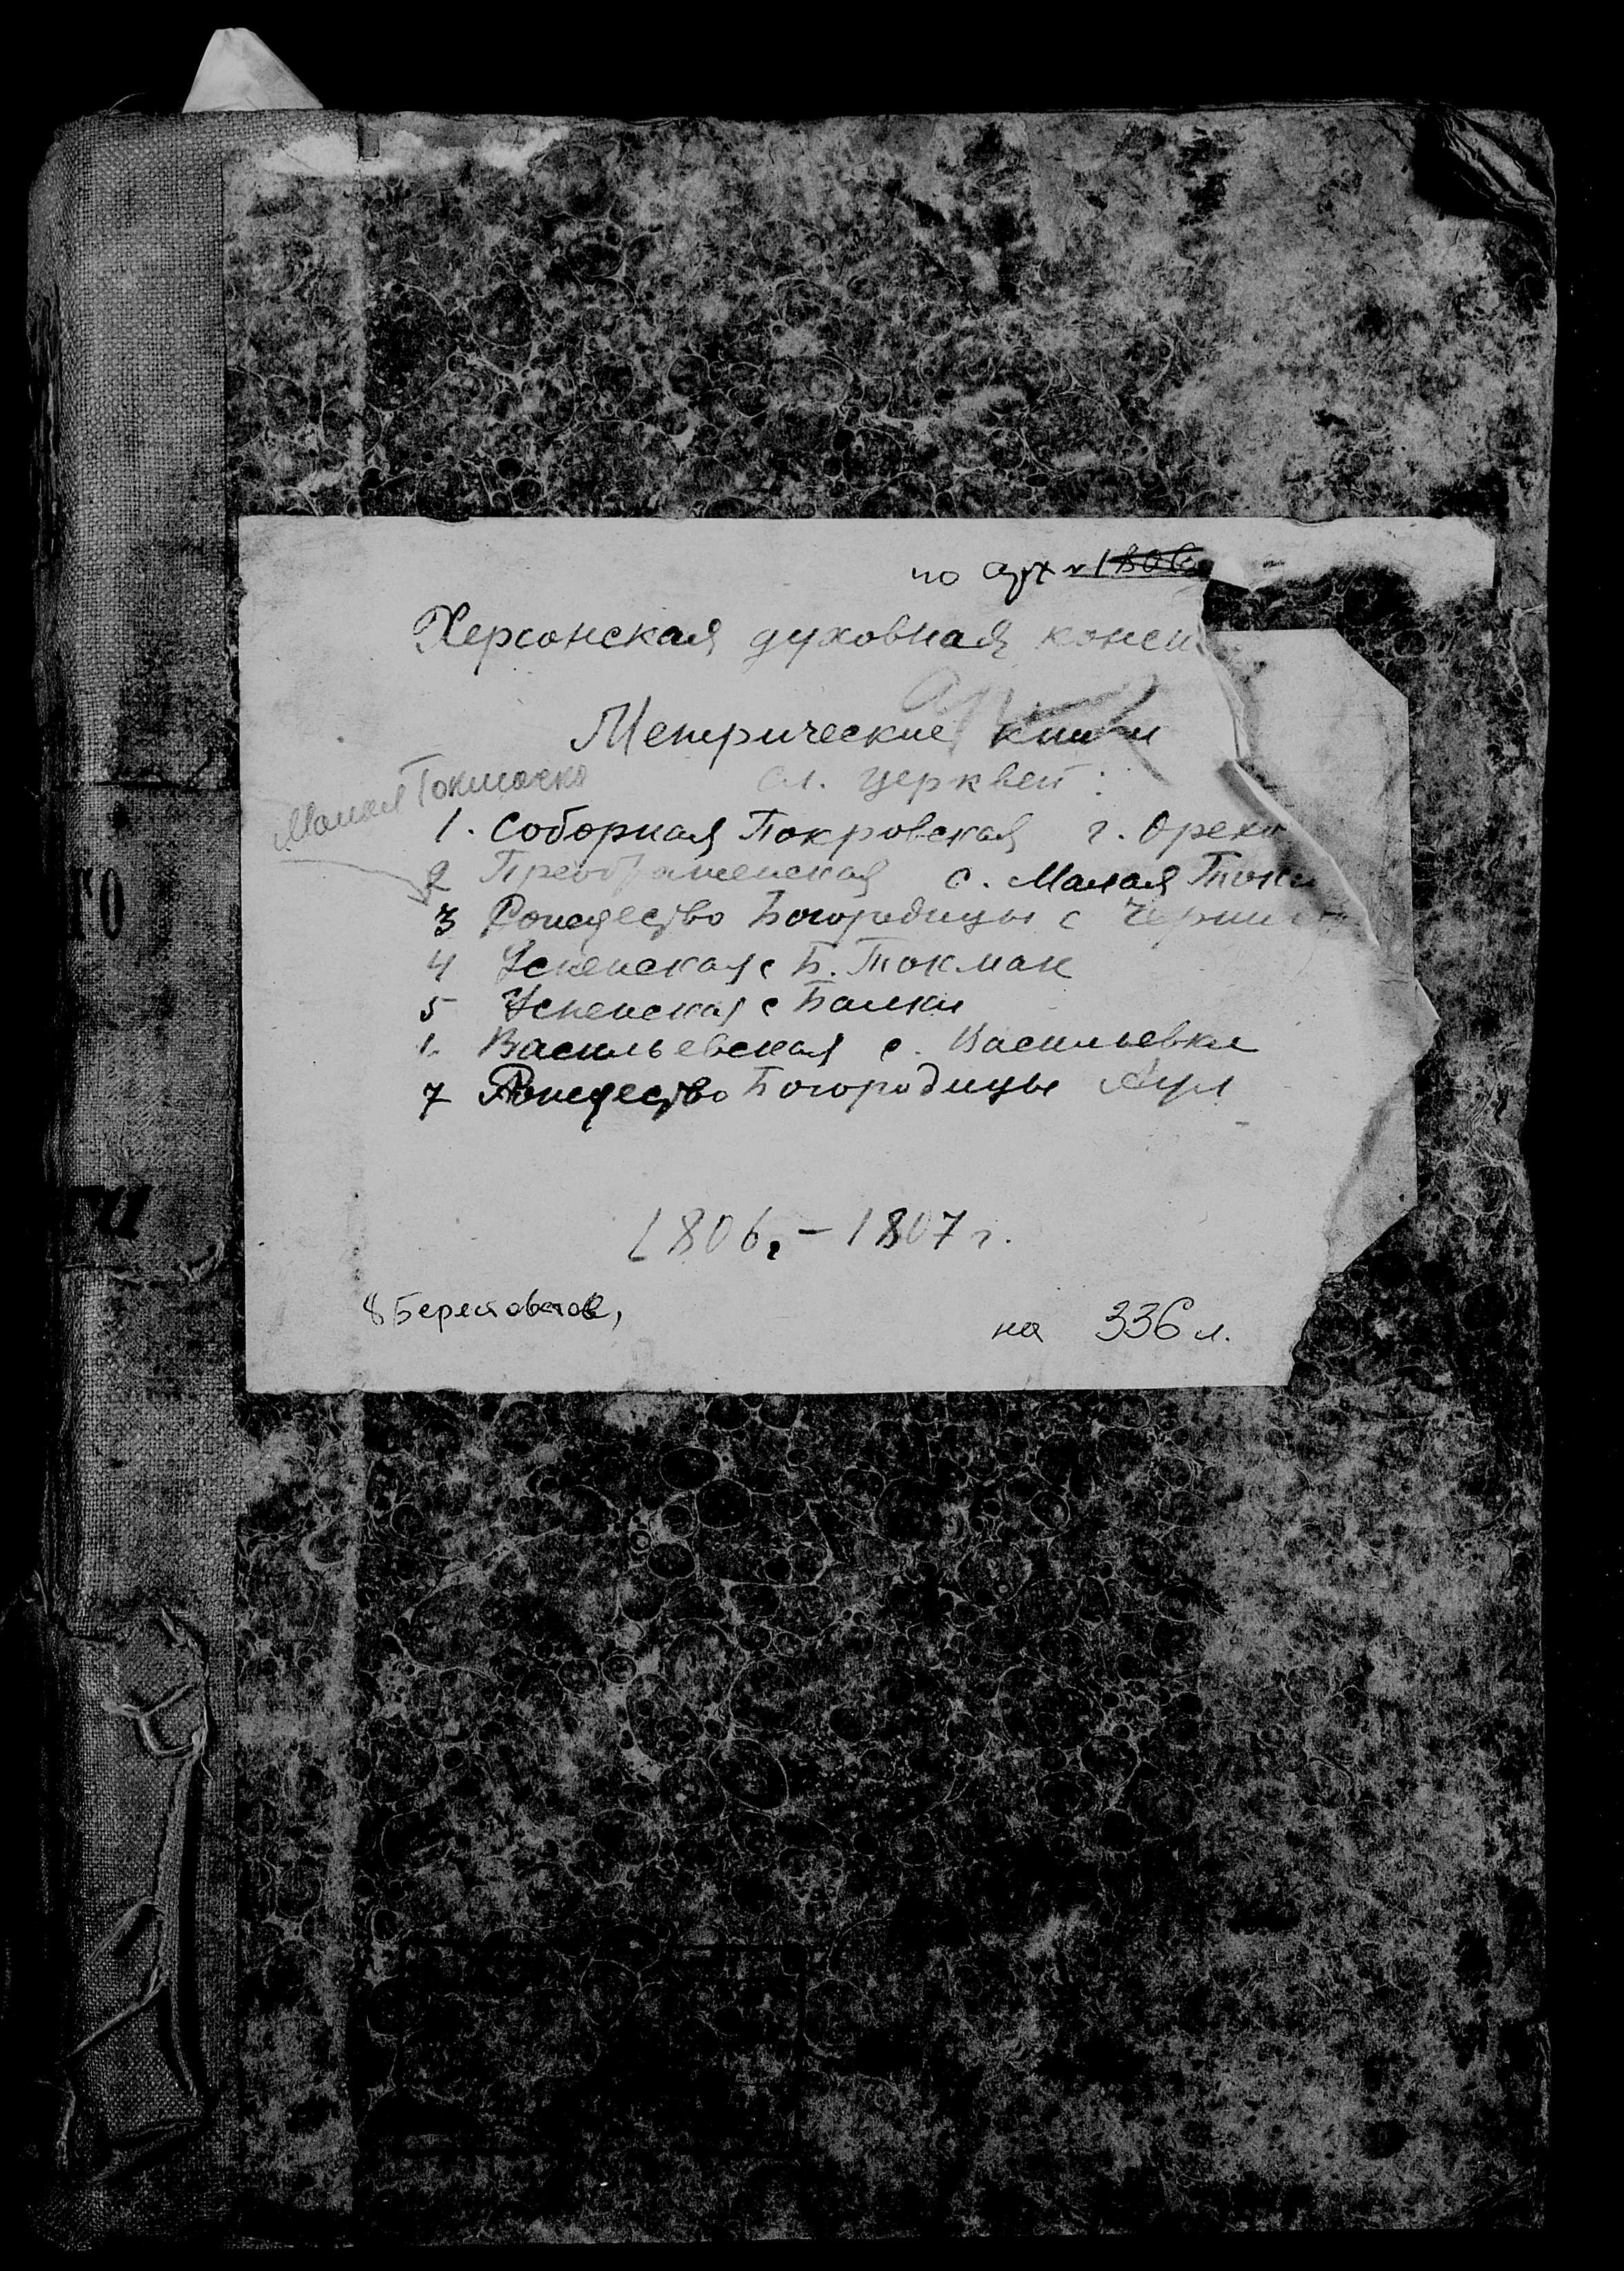 по арх 1806
Херсонская духовная конси
Метрические книги
сл. церквей:
Малая Токмачка
1. Соборная Покровская г. Орехо
2 Преображенская с. Малая Токм
3 Рождество Богородицы с Черниг
4 Успенская с Б. Токмак
5 Успенская с Балки
Васильевская с. Васильевки
7 Рождество Богородицы Аул
1806, - 1807 г.
8
на 336 л.
го